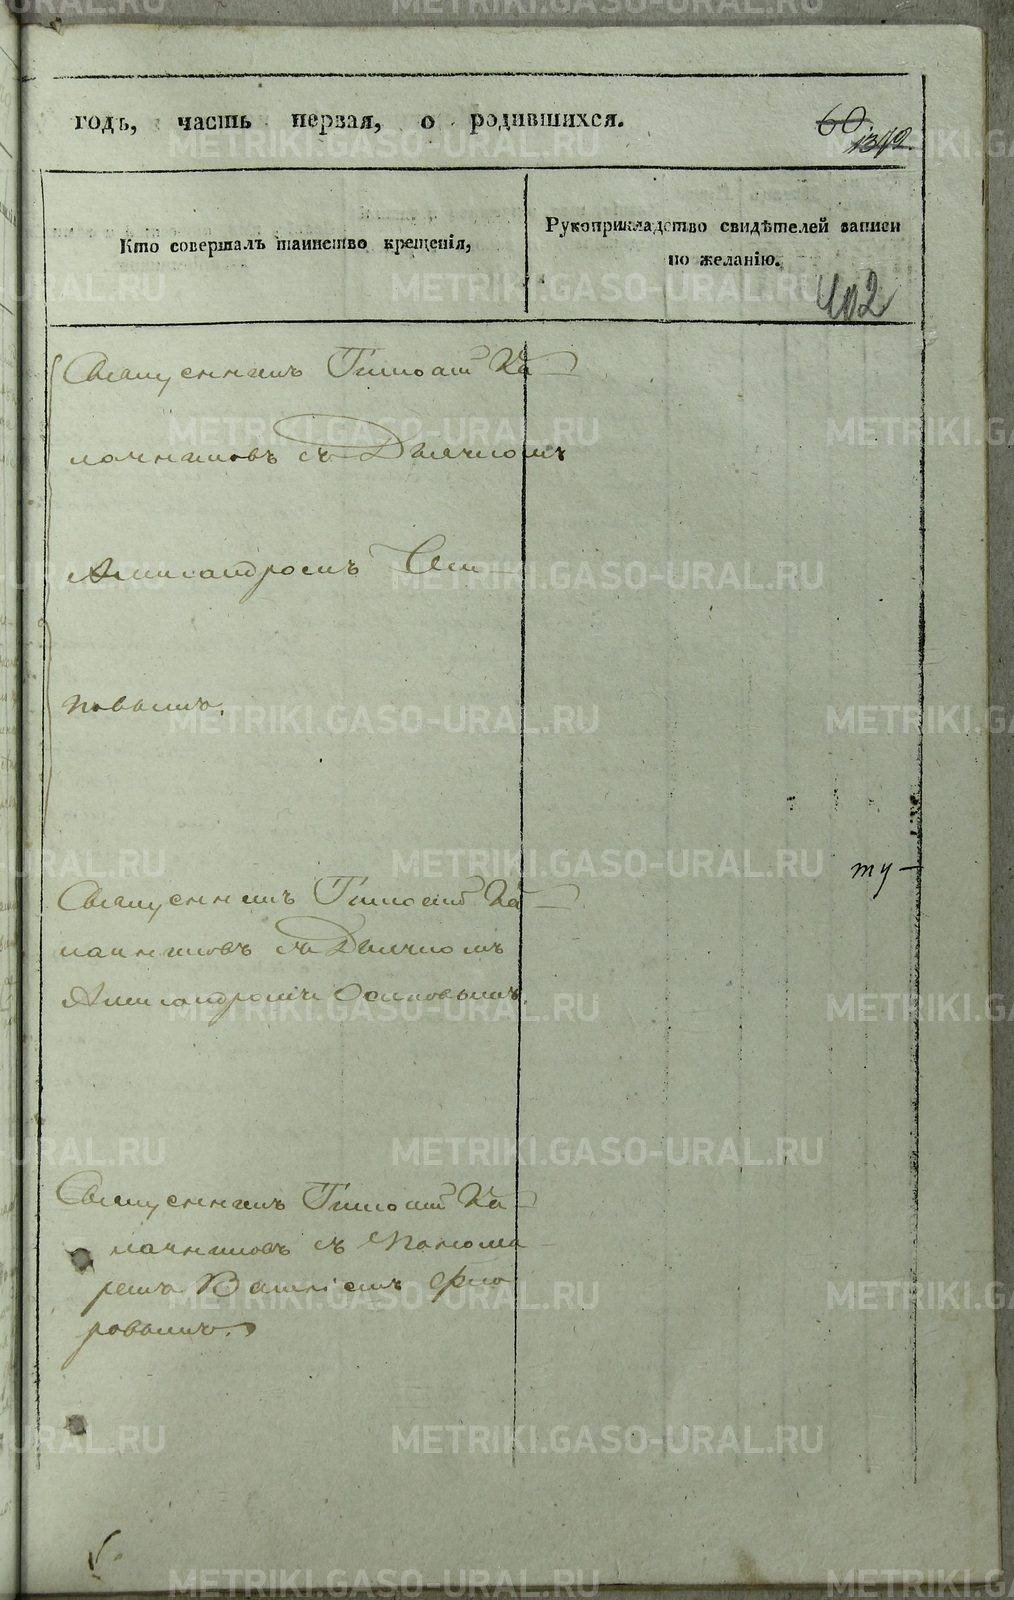 годъ, часть первая, о родившихся.
60
Кто совершалъ таинство крещенія,
Рукоприкладство свидѣтелей записи
по желанію.
402
Священникъ Тимоѳей Ка-
лачниковъ съ Дьячкомъ
Александромъ Оси-
повымъ.
Священникъ Тимоѳей Ка-
лачниковъ съ Дьячкомъ
Александромъ Осиповымъ.
ту-
Священникъ Тимоѳей Ка-
лачниковъ съ Понома-
ремъ
ровымъ.
METRIKI.GASO-URAL.RU